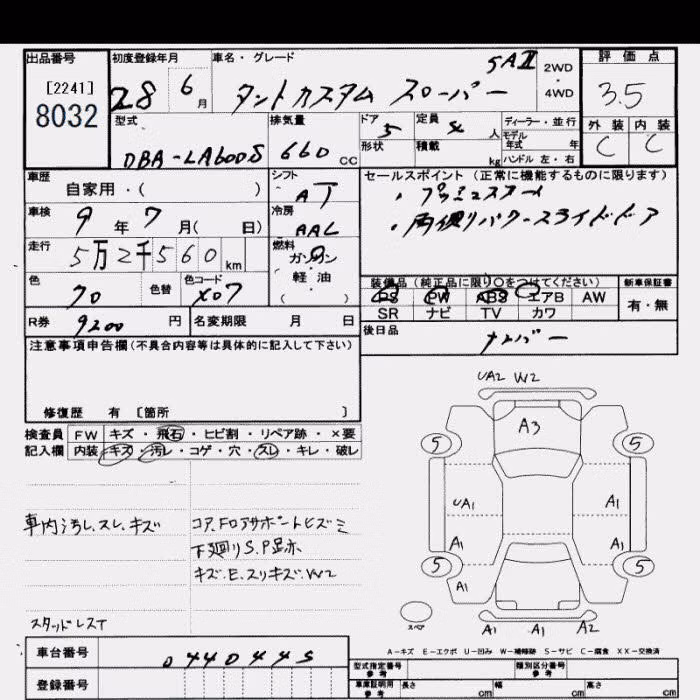 出品番号 初度登録年月 車名・グレード 評価点
[2241] 8032
28 6月 タントカスタム スローパー SAII 2WD・4WD
3.5
型式 排気量 ドア 定員 ディーラー・並行 外装 内装
DBA-LA600S 660 CC 5 4人 モデル年式 年 C C
形状 積載 kg ハンドル 左・右
車歴 シフト セールスポイント(正常に機能するものに限ります)
自家用・( ) AT ・プッシュスタート
車検 冷房 ・両側パワースライドドア
9年7月( 日) AAC
走行 燃料
5万2千560km ガソリン
軽・油
( )
色 色替 色コード 装備品(純正品に限り○をつけてください) 新車保証書
X07 PS PW ABS エアB AW 有・無
SR ナビ TV カワ
R券 9200円 名変期限 月 日 後日品 ナンバー
注意事項申告欄(不具合内容等は具体的に記入して下さい)
修復歴 有 [箇所 ]
検査員 FW キズ・飛石・ヒビ割・リペア跡・×要
記入欄 内装 キズ・汚レ・コゲ・穴・スレ・キレ・破レ
UA2 W2
A3
5 5
UA1 A1
A1 A1
5 5
A1
スペア A1 A1 A2
車内汚レ、スレ、キズ コア、Fロアサポートヒズミ
下廻りS.P足赤
キズ.E.スリキズ.W2
スタッドレスT
A-キズ E-エクボ U-凹み W-補修跡 S-サビ C-腐食 XX-交換済
車台番号 0440445 型式指定番号 参考 類別区分番号 参考
登録番号 車庫証明用 参考 長さ cm 幅 cm 高さ cm